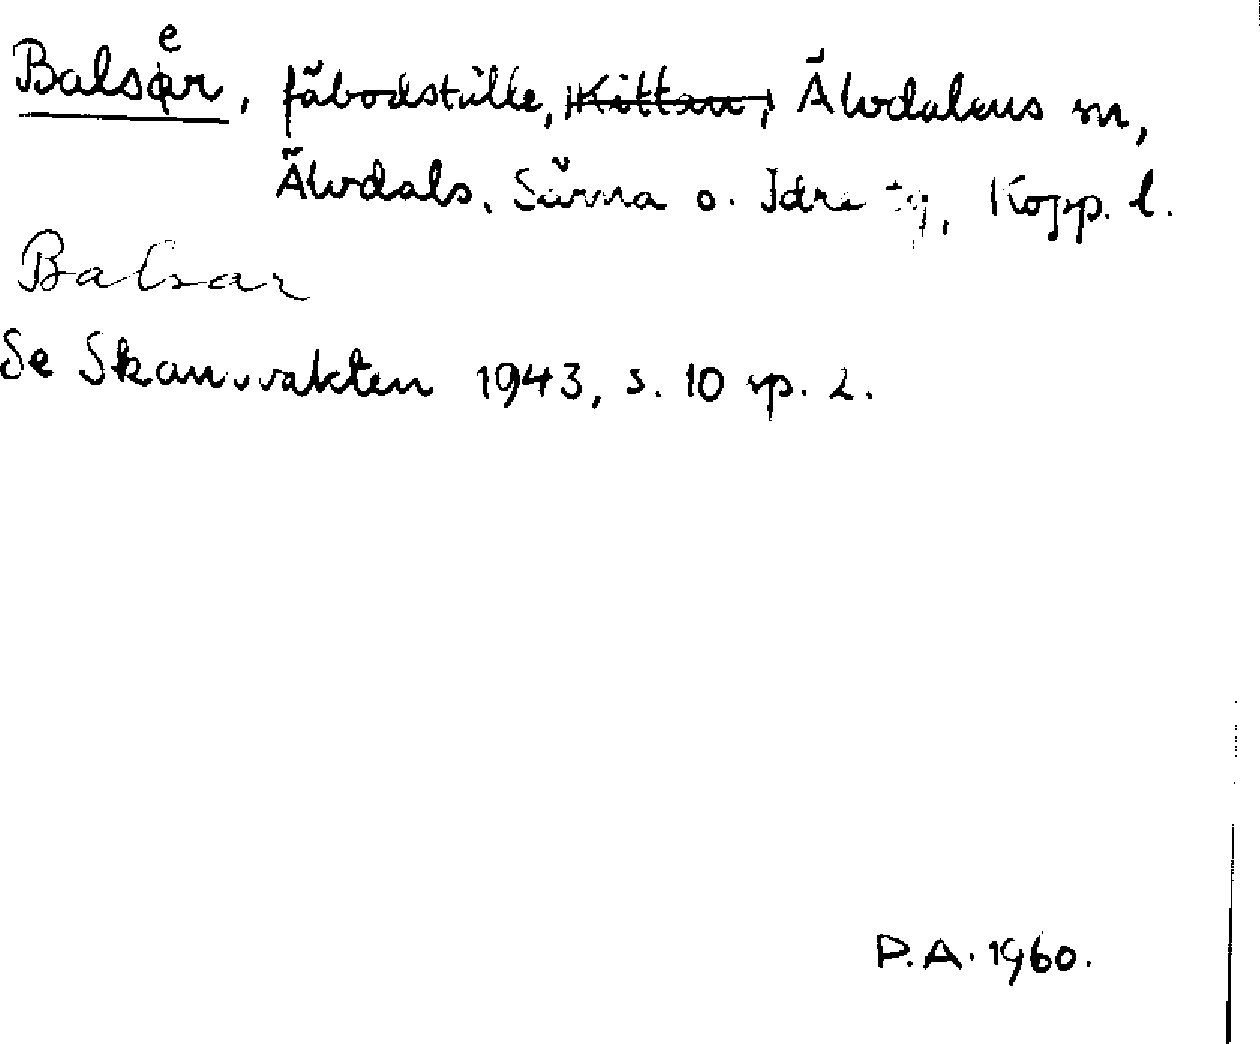 Balser, fäbodställe, Kittan, Älvdalens sn,
Älvdals, Särna o. Idre tg, Kopp. l.
Balsar
Se Skansvakten 1943, s. 10 sp. 2.
P.A. 1960.